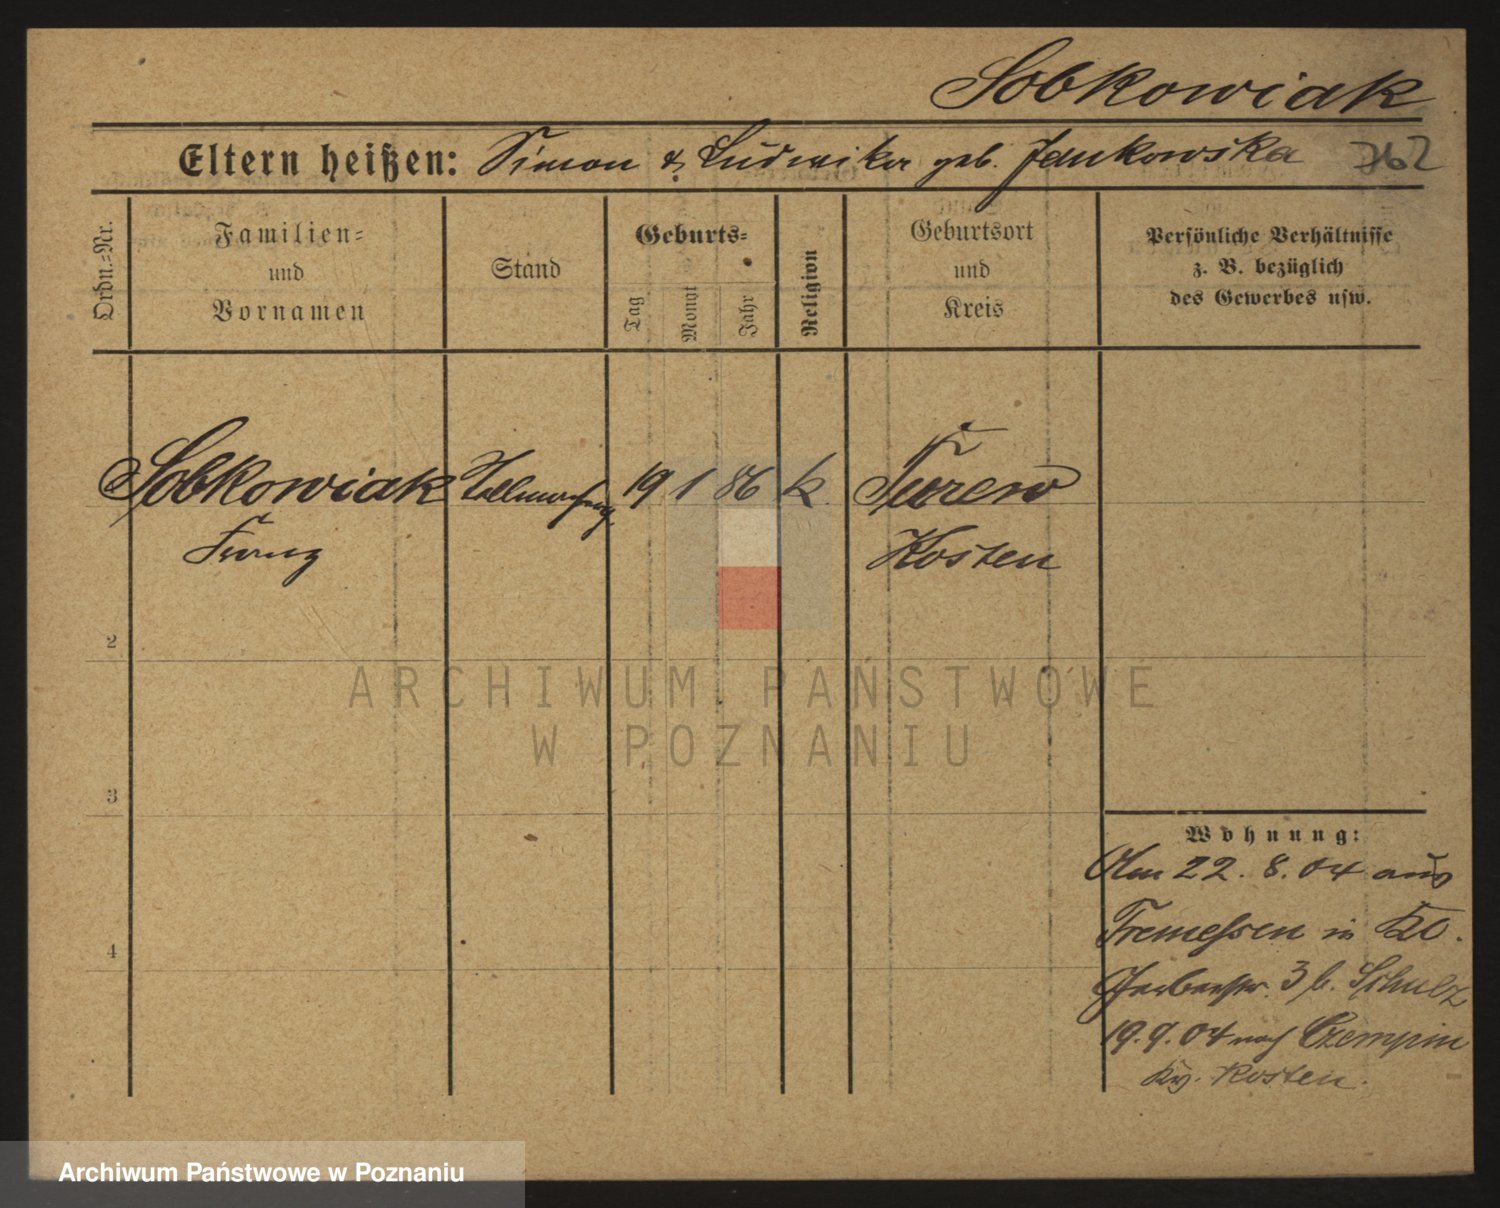 Sobkowiak
Eltern heißen: Simon & Ludwika geb. Jankowska 362
Ordn.=Nr.
Familien=
und
Vornamen
Stand
Geburts=
Tag
Monat
Jahr
Religion
Geburtsort
und
Kreis
Persönliche Verhältnisse
z. B. bezüglich
des Gewerbes usw.
Sobkowiak 19 1 86 k. Turew
Franz Kosten
2
3
4
Wohnung:
Am 22. 8. 04 aus
Tremessen in
Gerberstr. 3 b. Schulz
19. 9. 04 nach Czempin
Kr. Kosten.
ARCHIWUM PAŃSTWOWE
W POZNANIU
Archiwum Państwowe w Poznaniu